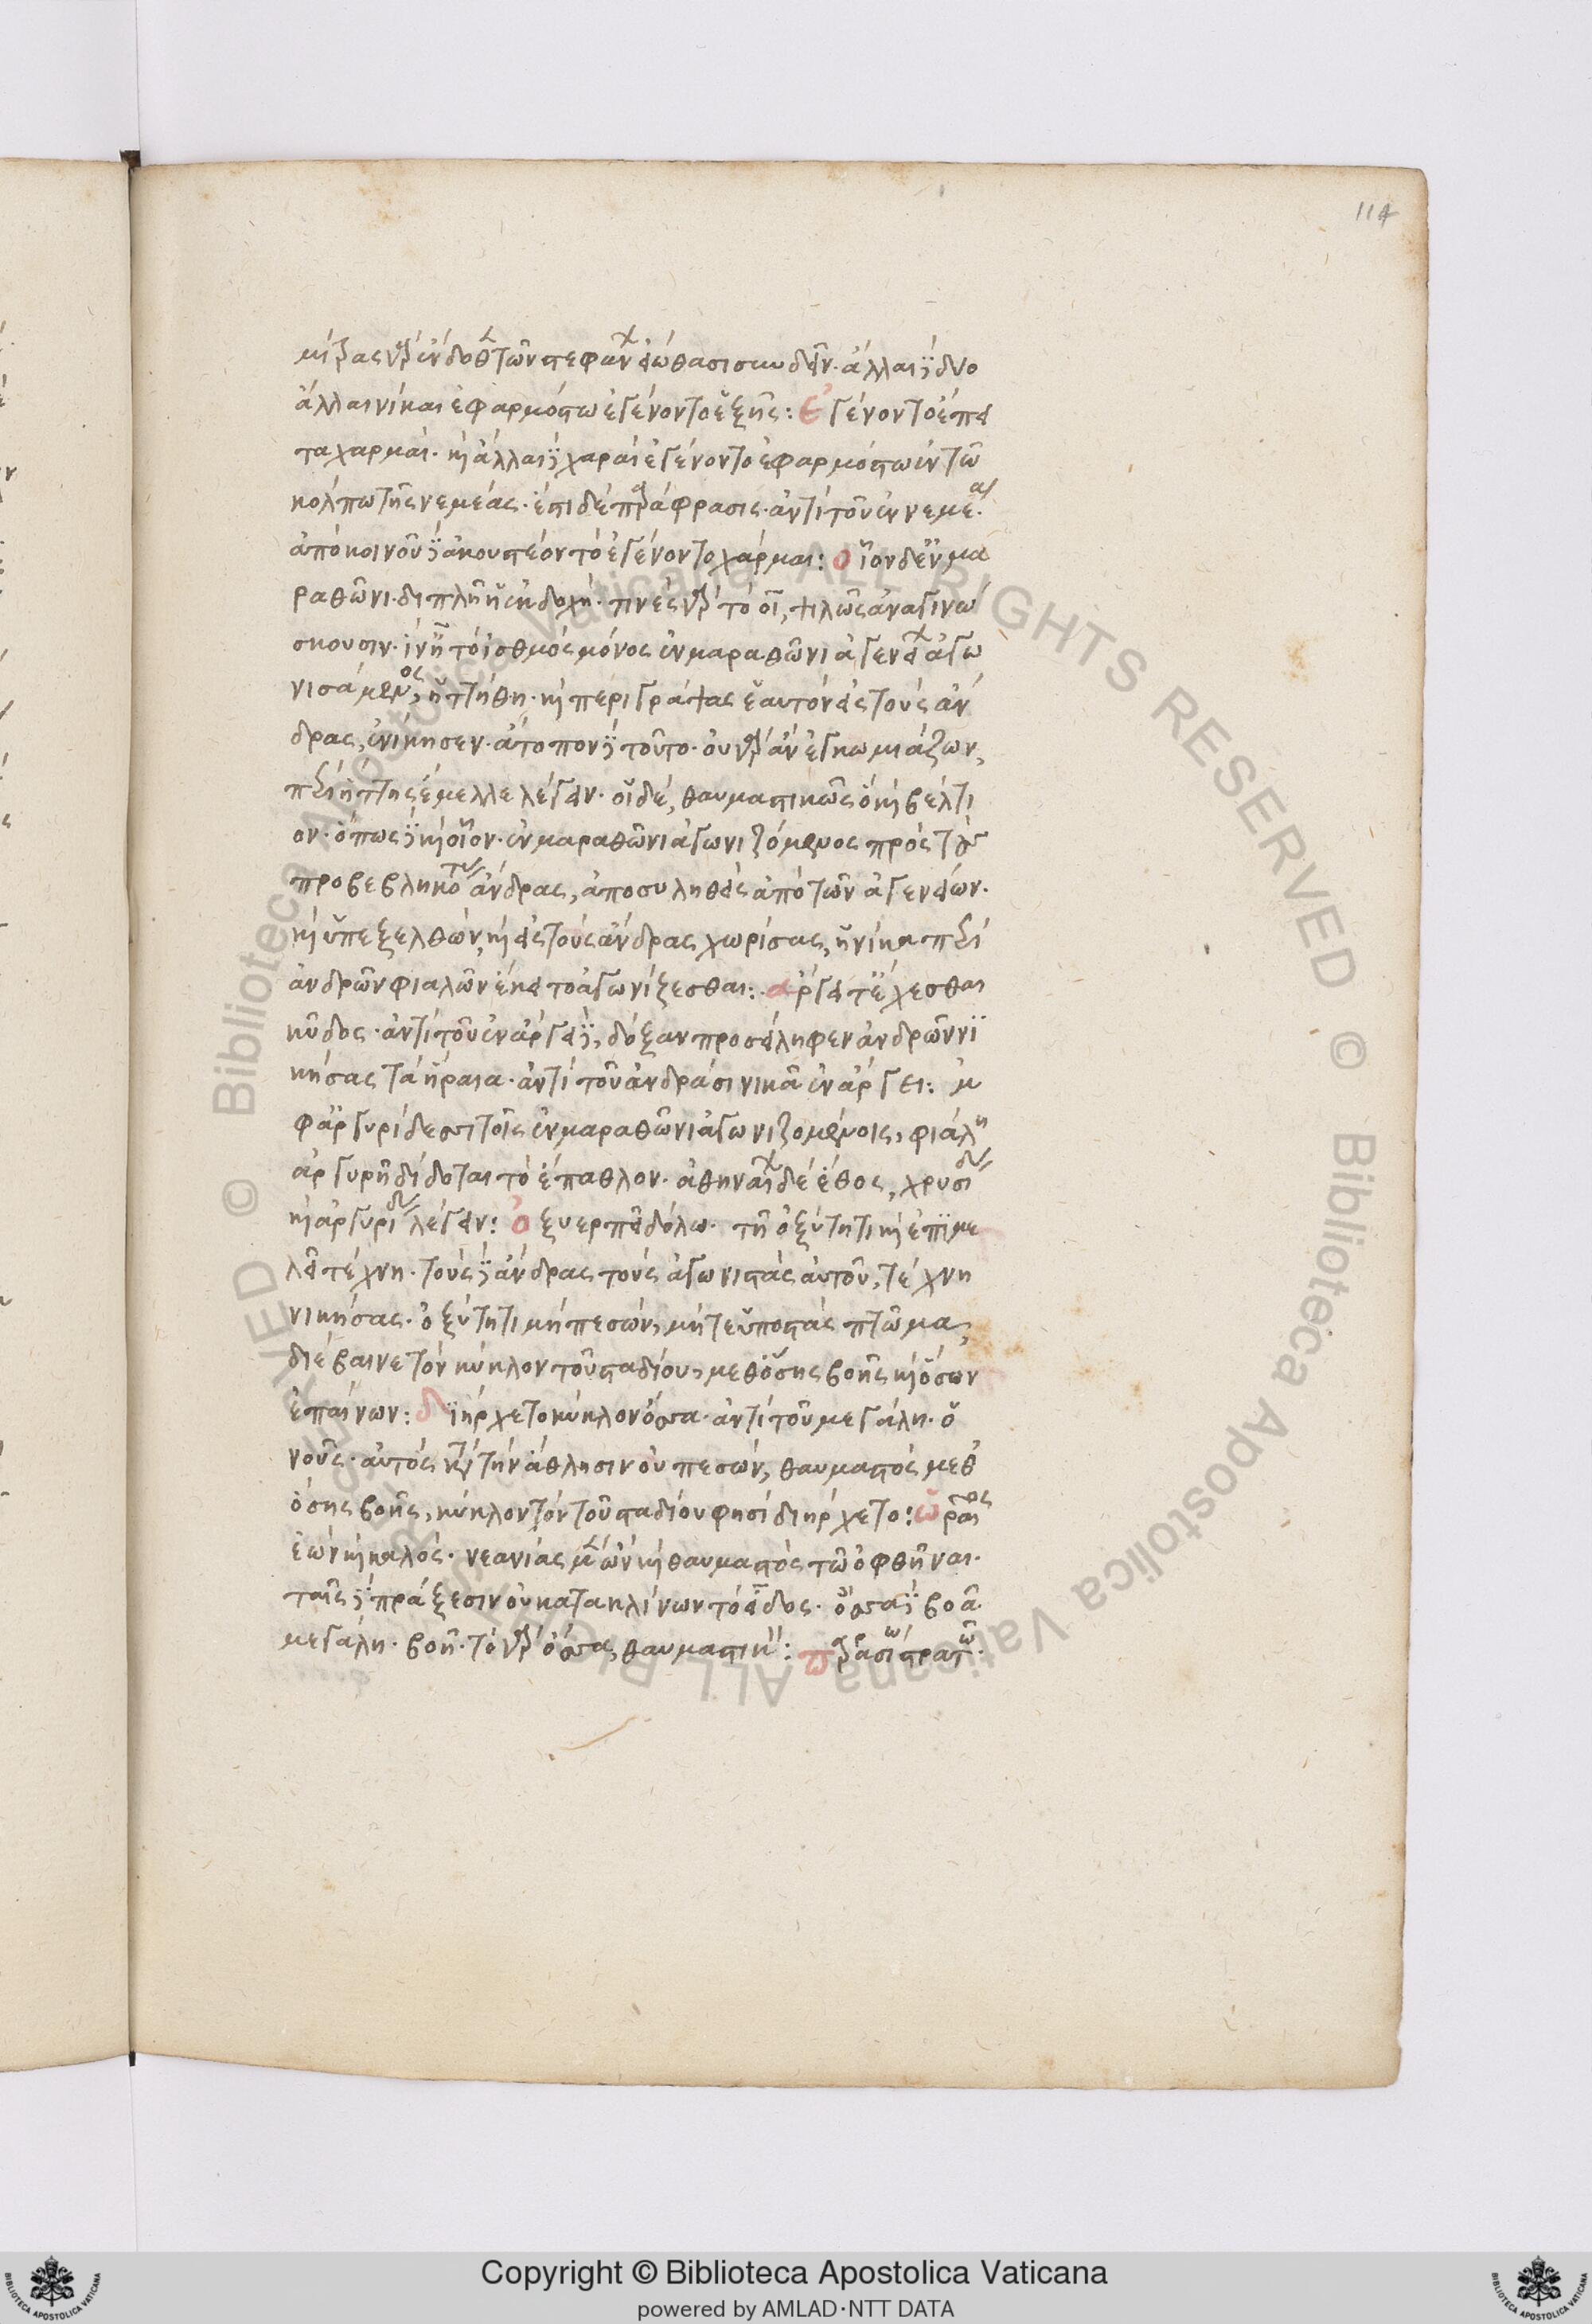 114
μίτρας γὰρ ἔνδοθεν τῶν στεφάνων εἰώθασι συνδεῖν. ἄλλαι δὲ δύο
ἄλλαι νίκαι ἐφ' ἁρμόστω ἐγένοντο ἑξῆς: Ἐγένοντο ἔπει
τα χάρμαι. καὶ ἄλλαι δὲ χαραὶ ἐγένοντο ἐφ' ἁρμόστω ἐν τῶ
κόλπω τῆς νεμέας. ἔστι δὲ παράφρασις. ἀντὶ τοῦ ἐν νεμέα.
ἀπὸ κοινοῦ δὲ ἀκουστέον τὸ ἐγένοντο χάρμαι: Οἷον δ' ἐν μα
ραθῶνι. διπλῆ ἡ ἐκδοχή. τινὲς γὰρ τὸ οἷ, ψιλῶς ἀναγινώ
σκουσιν. ἵν' ᾖ τὸ ἰσθμὸς μόνος ἐν μαραθῶνι ἀγενείων ἀγω
νισάμενος, ἡττήθη. καὶ περιγράψας ἑαυτὸν εἰς τοὺς ἄν
δρας, ἐνίκησεν. ἄτοπον δὲ τοῦτο. οὐ γὰρ ἂν ἐγκωμιάζων,
περὶ ἥττης ἔμελλε λέγειν. οἱ δὲ, θαυμαστικῶς ὃ καὶ βέλτι
ον. ὅπως δὲ καὶ οἷον. ἐν μαραθῶνι ἀγωνιζόμενος πρὸς τοὺς
προβεβληκότας ἄνδρας, ἀποσυληθεὶς ἀπὸ τῶν ἀγενείων.
καὶ ὑπεξελθών, καὶ εἰς τοὺς ἄνδρας χωρίσας, ἡνίκα περὶ
ἀνδρῶν φιαλῶν ἔκειτο ἀγωνίζεσθαι: ἄργει τ' ἔχεσθαι
κῦδος. ἀντὶ τοῦ ἐν ἄργει δὲ, δόξαν προσείληφεν ἀνδρῶν νι
κήσας τὰ ἥραια. ἀντὶ τοῦ ἀνδράσι νικᾶ ἐν ἄργει: ἀμ
φ' ἀργυρίδεσσι τοῖς ἐν μαραθῶνι ἀγωνιζομένοις, φιάλη
ἀργυρῆ δίδοται τὸ ἔπαθλον. ἀθηναίων δὲ ἔθος, χρυσίδας
καὶ ἀργυρίδας λέγειν: Ὀξυερπεῖ δόλω. τῆ ὀξύτητι καὶ ἐπιμε
λεῖ τέχνη. τοὺς δὲ ἄνδρας τοὺς ἀγωνιστὰς αὐτοῦ, τέχνη
νικήσας. ὀξύτητι μὴ πεσών, μήτε ὑποστὰς πτῶμα,
διέβαινε τὸν κύκλον τοῦ σταδίου, μεθ' ὅσης βοῆς καὶ ὅσων
ἐπαίνων: διήρχετο κύκλον ὅσσα. ἀντὶ τοῦ μεγάλη. ὁ
νοῦς. αὐτὸς κατὰ τὴν ἄθλησιν οὐ πεσών, θαυμαστὸς μεθ'
ὅσης βοῆς, κύκλον τὸν τοῦ σταδίου φησὶ διήρχετο: ὡραῖος
ἐὼν καὶ καλός. νεανίας μὲν ὢν καὶ θαυμαστὸς τῶ ὀφθῆναι.
ταῖς δὲ πράξεσιν οὐ κατακλίνων τὸ εἶδος. ὅσσα δὲ βοᾶ.
μεγάλη. βοῆ. τὸ γὰρ ὅσσα, θαυμαστικὴ: παρρασίω στρατῶ.
Copyright © Biblioteca Apostolica Vaticana
powered by AMLAD·NTT DATA